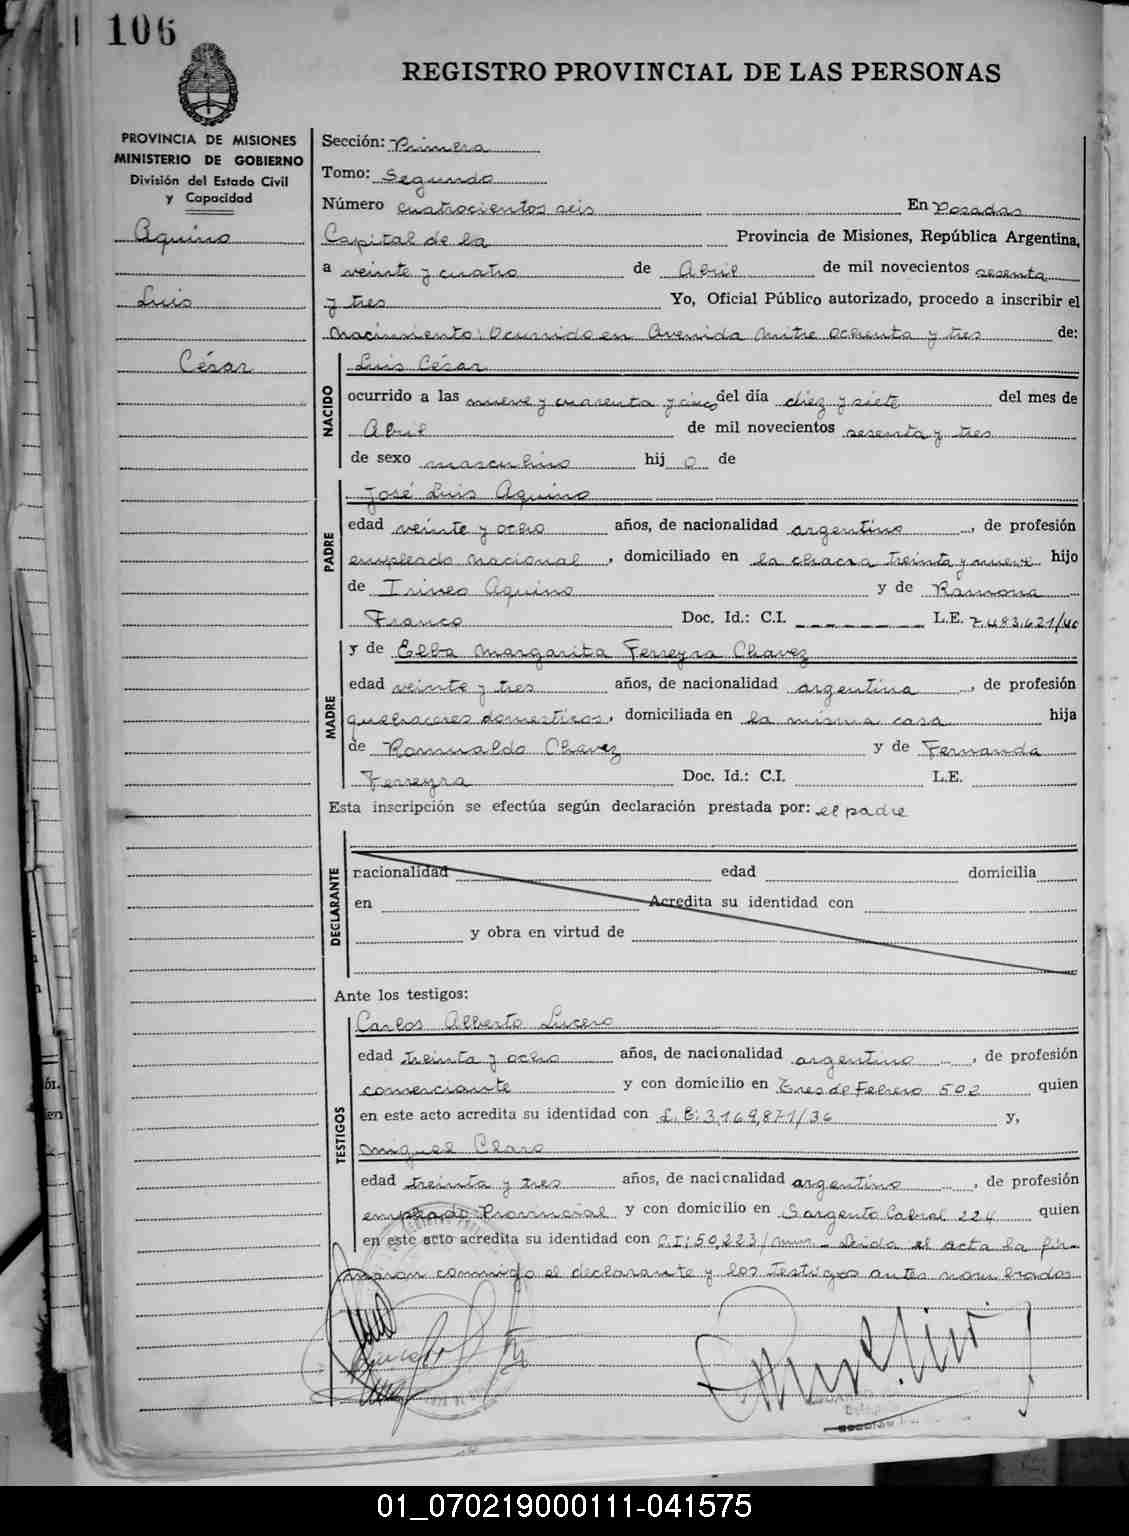 106
REGISTRO PROVINCIAL DE LAS PERSONAS
PROVINCIA DE MISIONES
MINISTERIO DE GOBIERNO
División del Estado Civil
y Capacidad
Aquino
Luis
César
Sección: Primera
Tomo: Segundo
Número cuatrocientos seis En Posadas
Capital de la Provincia de Misiones, República Argentina,
a veinte y cuatro de Abril de mil novecientos sesenta
y tres Yo, Oficial Público autorizado, procedo a inscribir el
Nacimiento: Ocurrido en Avenida Mitre ochenta y tres de:
NACIDO
Luis César
ocurrido a las nueve y cuarenta y cinco del día diez y siete del mes de
Abril de mil novecientos sesenta y tres
de sexo masculino hij o de
PADRE
José Luis Aquino
edad veinte y ocho años, de nacionalidad argentino, de profesión
empleado nacional, domiciliado en la chacra treinta y nueve hijo
de Irineo Aquino y de Ramona
Franco Doc. Id.: C.I. L.E. 7.483.621/40
MADRE
y de Elba Margarita Ferreyra Chavez
edad veinte y tres años, de nacionalidad argentina, de profesión
quehaceres domesticos, domiciliada en la misma casa hija
de Romualdo Chavez y de Fernanda
Ferreyra Doc. Id.: C.I. L.E.
Esta inscripción se efectúa según declaración prestada por: el padre
DECLARANTE
nacionalidad edad domicilia
en Acredita su identidad con
y obra en virtud de
Ante los testigos:
TESTIGOS
Carlos Alberto Lucero
edad treinta y ocho años, de nacionalidad argentino, de profesión
comerciante y con domicilio en Tres de Febrero 502 quien
en este acto acredita su identidad con L.E: 3,169,871/36 y,
Miguel Claro
edad treinta y tres años, de nacionalidad argentino, de profesión
empleado Provincial y con domicilio en Sargento Cabral 224 quien
en este acto acredita su identidad con C.I; 50,223/mnes. Leida el acta la fir-
maron conmigo el declarante y los testigos antes nombrados
01_070219000111-041575